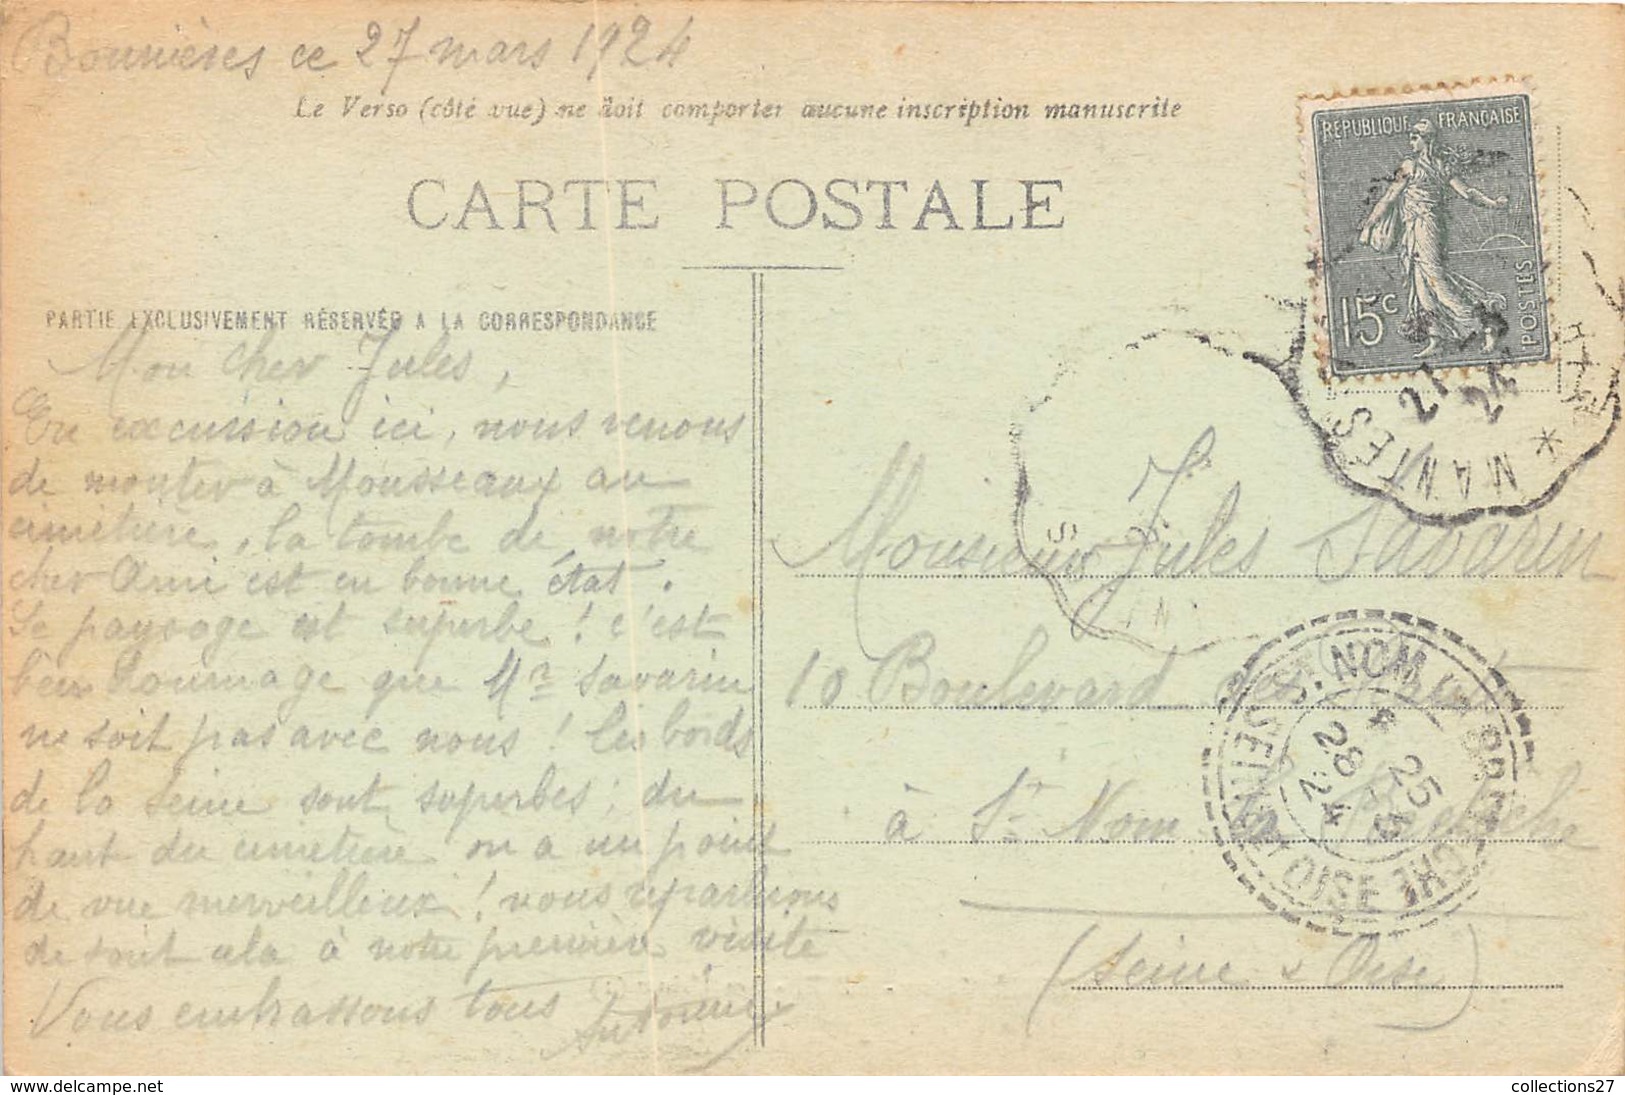 Bonnières ce 27 mars 1924
Le Verso (côté vue) ne doit comporter aucune inscription manuscrite
CARTE POSTALE
REPUBLIQUE FRANÇAISE
15c
POSTES
* MANTES
27-3
24
PARTIE EXCLUSIVEMENT RÉSERVÉE A LA CORRESPONDANCE
Mon cher Jules,
En excursion ici, nous venons
de monter à Mousseaux au
cimetière, la tombe de notre
cher Ami est en bonne état.
Le paysage est superbe ! c'est
bien dommage que Mr Savarin
ne soit pas avec nous ! les bords
de la Seine sont superbes ; du
haut du cimetière on a un point
de vue merveilleux ! nous reparlerons
de tout cela à notre première visite
Vous embrassons tous
Monsieur Jules Savarin
10 Boulevard
à St Nom la Bretèche
(Seine & Oise)
ST NOM LA BRETECHE
* 25
28 -3
24
SEINE ET OISE
collections27